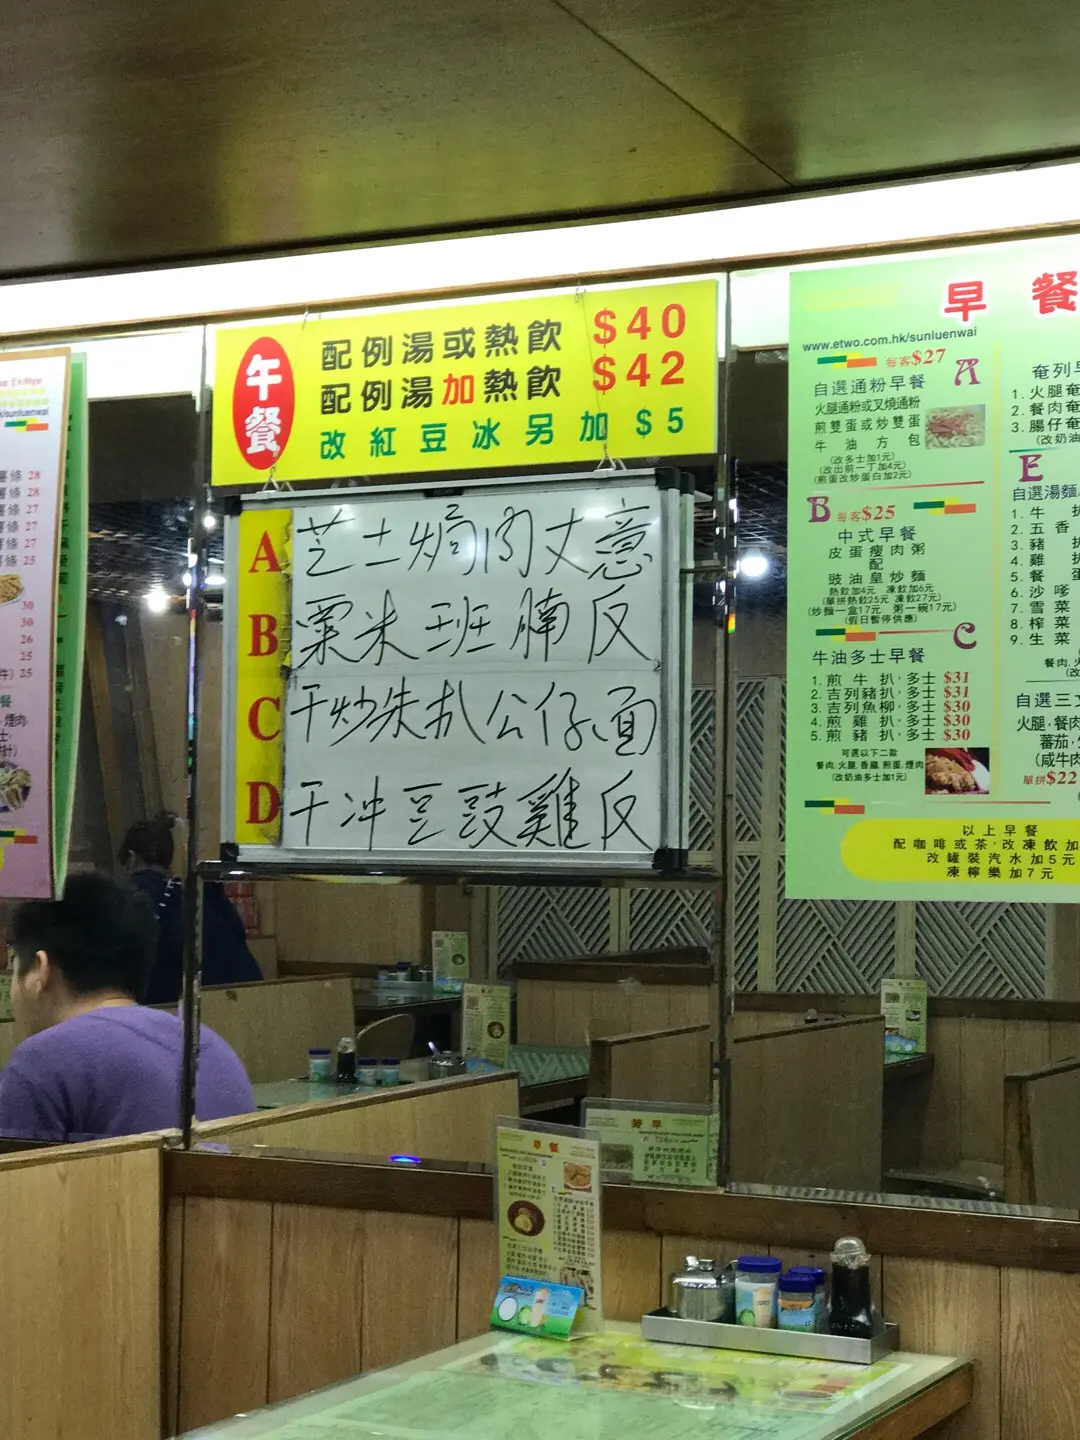 午餐
配例湯或熱飲 $40
配例湯加熱飲 $42
改紅豆冰另加 $5
A 芝士焗肉丈意
B 粟米班腩反
C 干炒朱扒公仔面
D 干冲豆豉雞反
薯條 28
薯條 28
薯條 27
薯條 27
薯條 27
薯條 25
30
30
26
25
25
早餐
www.etwo.com.hk/sunluenwai
每客$27 A
自選通粉早餐
火腿通粉或叉燒通粉
煎雙蛋或炒雙蛋
牛油方包
(改多士加1元)
(改出前一丁加4元)
(煎蛋改炒蛋白加2元)
B 每客$25
中式早餐
皮蛋瘦肉粥
配
豉油皇炒麵
熱飲加4元 凍飲加6元
(單拼熱飲25元 凍飲27元)
(炒麵一盒17元 粥一碗17元)
(假日暫停供應)
C
牛油多士早餐
1. 煎牛扒,多士 $31
2. 吉列豬扒,多士 $31
3. 吉列魚柳,多士 $30
4. 煎雞扒,多士 $30
5. 煎豬扒,多士 $30
可選以下二款
餐肉,火腿,香腸,煎蛋,煙肉
(改奶油多士加1元)
奄列早
1. 火腿奄
2. 餐肉奄
3. 腸仔奄
(改奶油
E
自選湯麵
1. 牛扒
2. 五香
3. 豬扒
4. 雞扒
5. 餐蛋
6. 沙嗲
7. 雪菜
8. 榨菜
9. 生菜
餐肉,火
自選三文
火腿,餐肉
蕃茄,
(咸牛肉
單拼$22
以上早餐
配咖啡或茶,改凍飲加
改罐裝汽水加5元
凍檸樂加7元
早餐